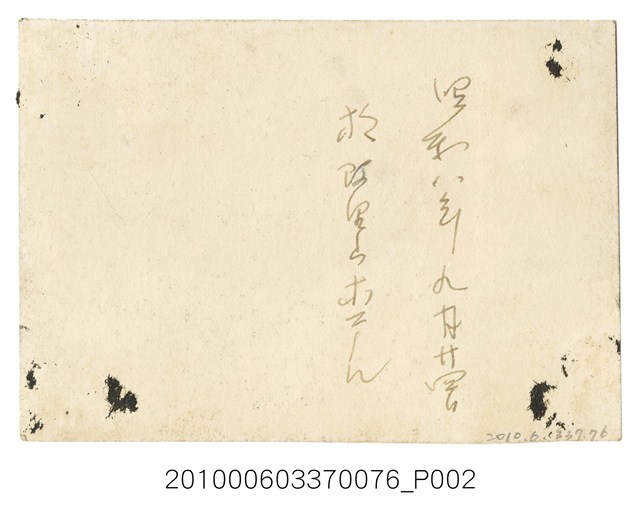 昭和八年九月廿四日
於阿里山ホーム
2010.6.(337.76
201000603370076_P002